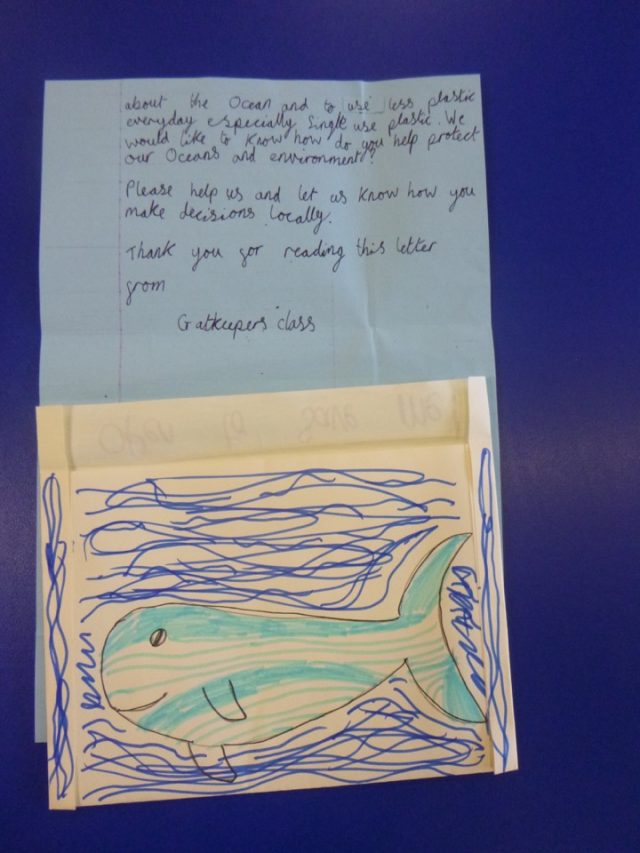 about the Ocean and to use less plastic
everyday especially Single use plastic. We
would like to know how do you help protect
our Oceans and environment?
Please help us and let us know how you
make decisions locally.
Thank you for reading this letter
from
Gatkeepers class